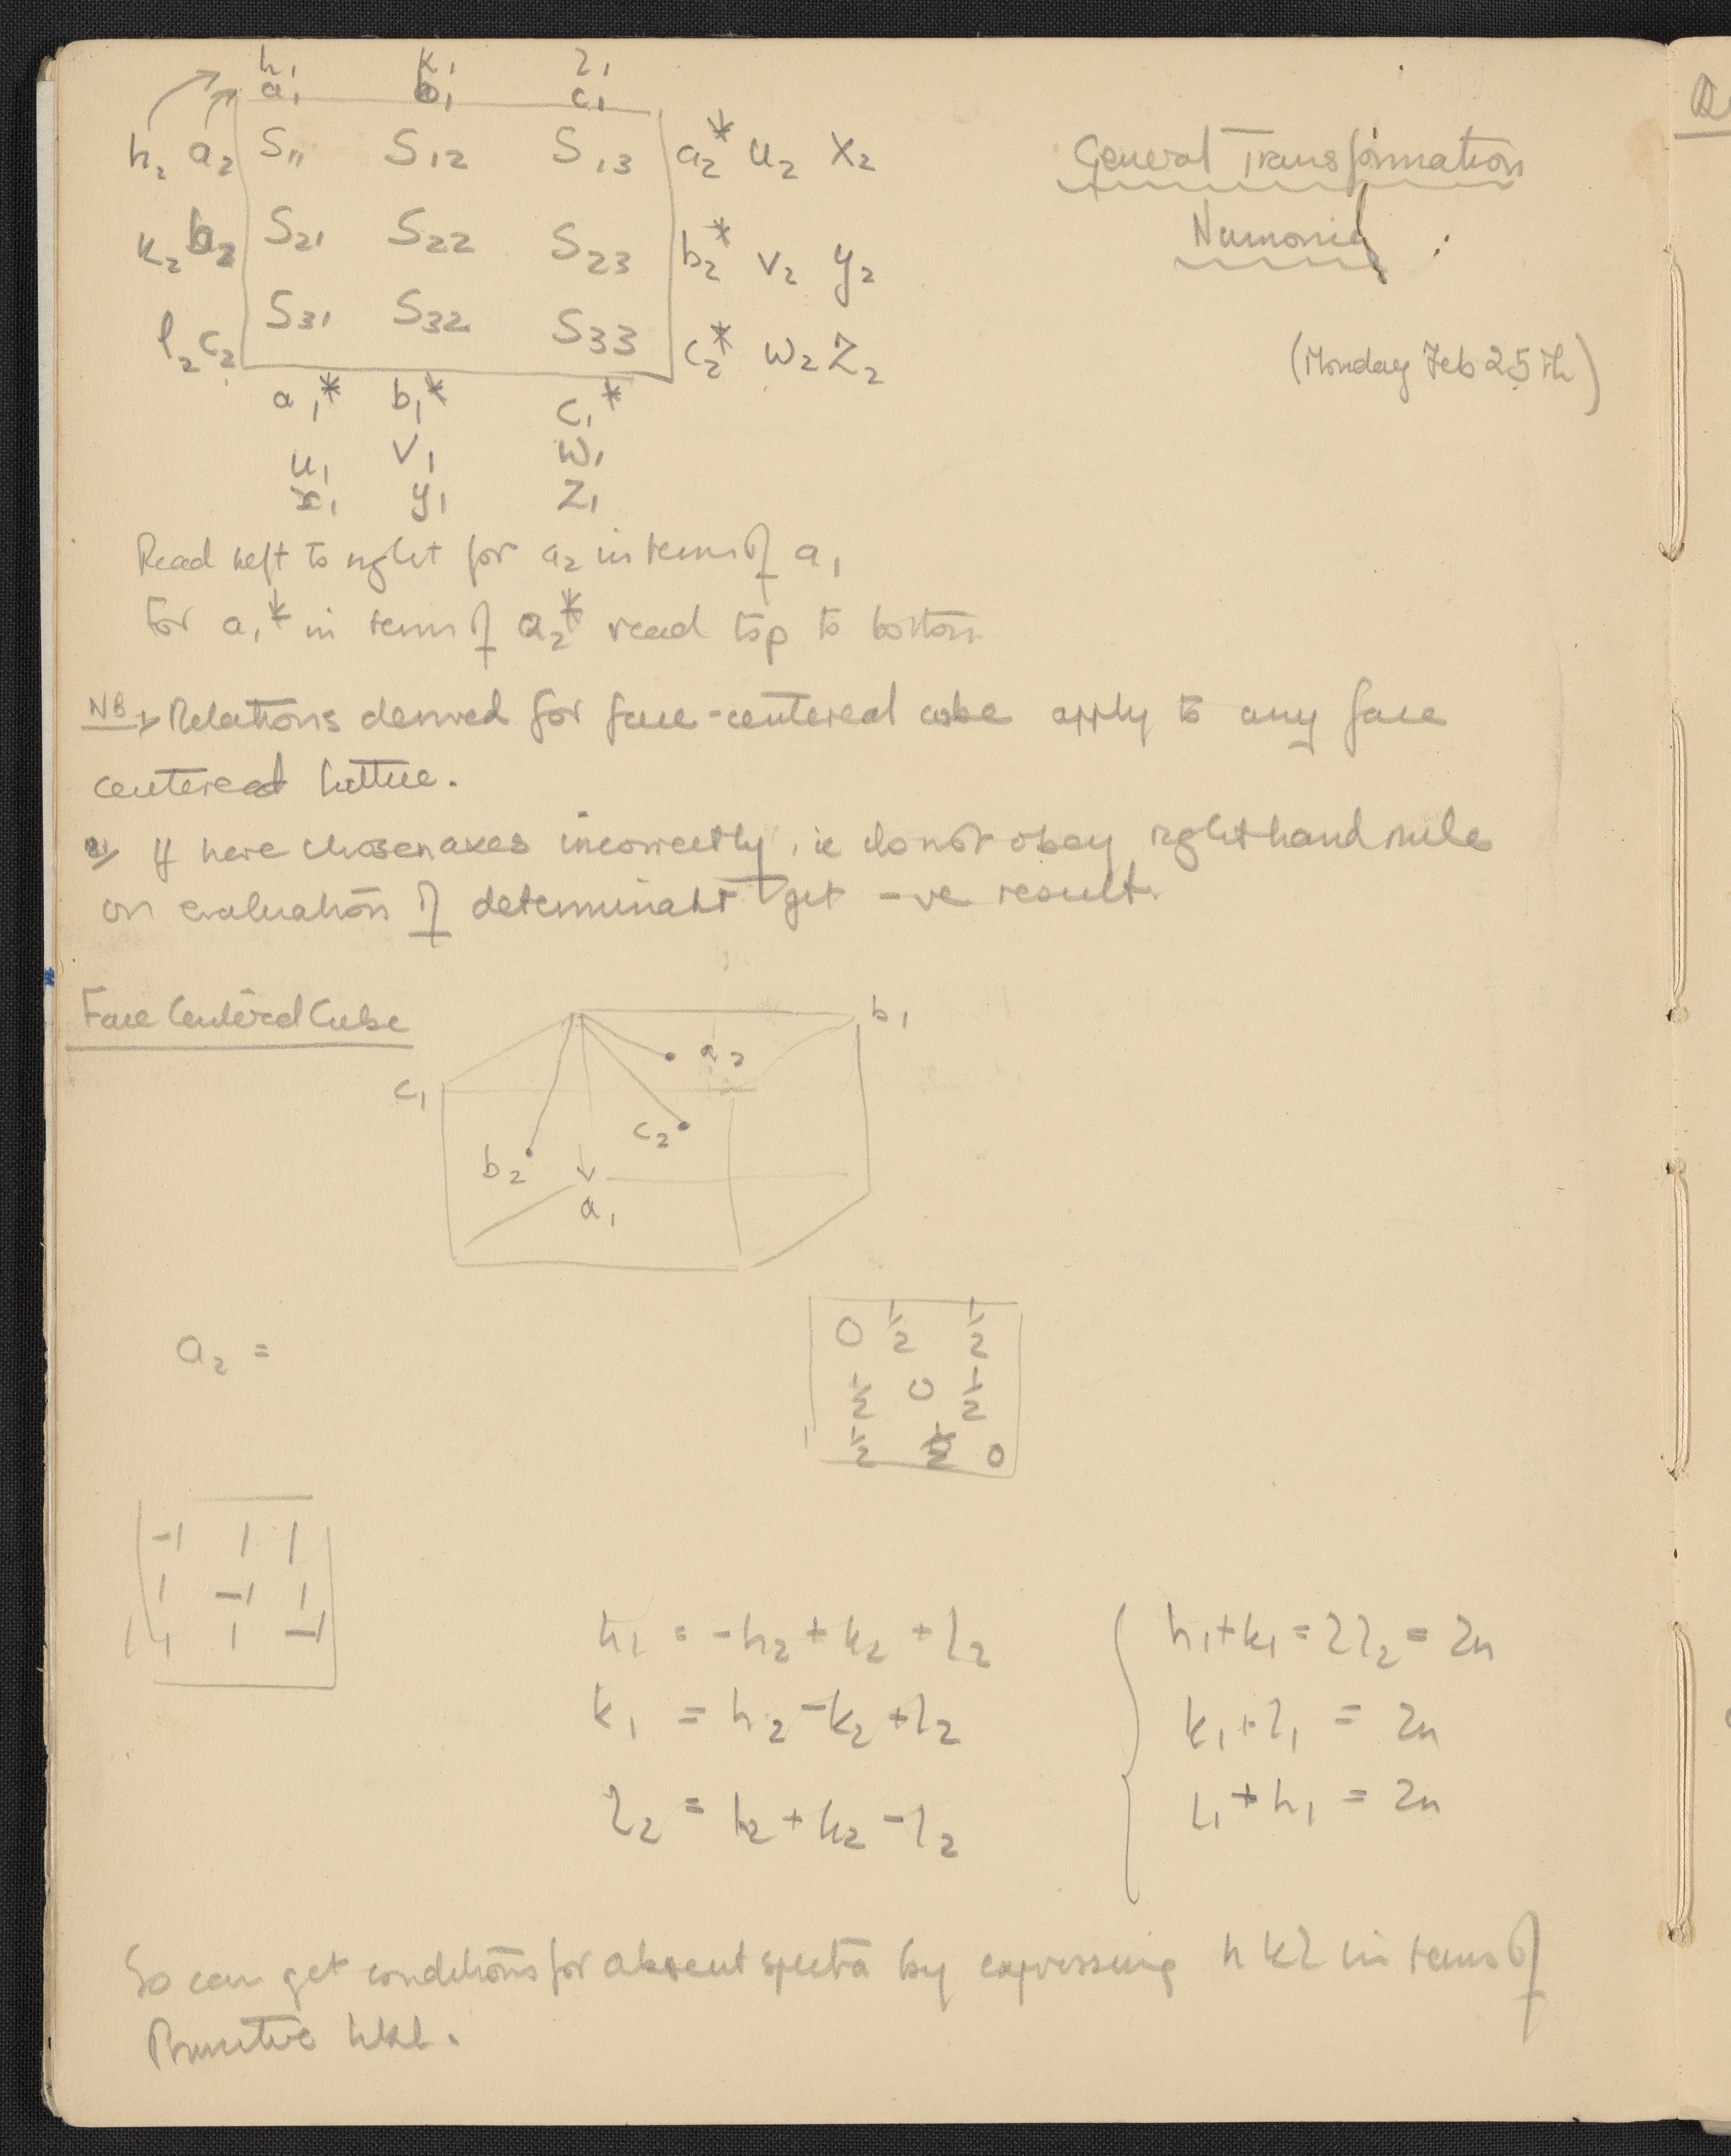 h1 k1 l1
a1 b1 c1
h2 a2 S11 S12 S13 a2* u2 x2
k2 b2 S21 S22 S23 b2* v2 y2
l2 c2 S31 S32 S33 c2* w2 z2
a1* b1* c1*
u1 v1 w1
x1 y1 z1
General Transformation
Numonic
(Monday Feb 25th)
Read left to right for a2 in terms of a1
For a1* in terms of a2* read top to bottom
NB 1/ Relations derived for face-centered cube apply to any face
centered lattice.
2/ If have chosen axes incorrectly, ie do not obey right hand rule
on evaluation of determinant get -ve result.
Face Centered Cube
b1
a2
c1
c2
b2
a1
a2 =
0 ½ ½
½ 0 ½
½ ½ 0
-1 1 1
1 -1 1
1 1 -1
h1 = -h2 + k2 + l2
k1 = h2 - k2 + l2
l2 = h2 + k2 - l2
h1+k1 = 2l2 = 2n
k1+l1 = 2n
l1+h1 = 2n
So can get conditions for absent spectra by expressing hkl in terms of
Primitive hkl.